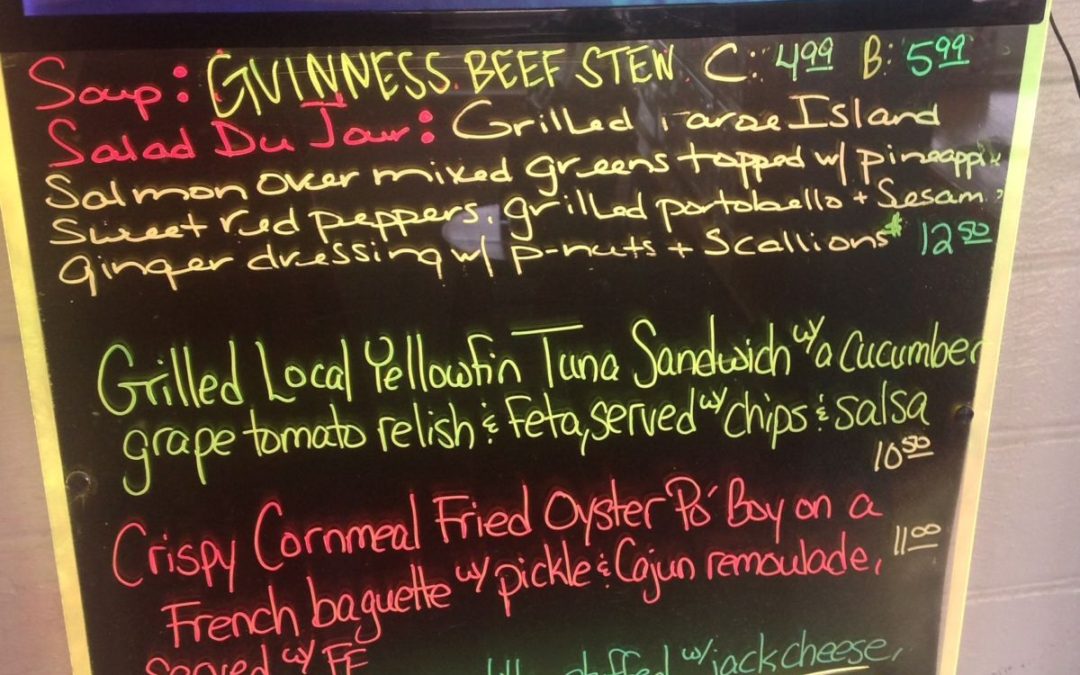 Soup: GUINNESS BEEF STEW C: 4.99 B: 5.99
Salad Du Jour: Grilled Faroe Island
Salmon over mixed greens topped w/ pineapple
Sweet red peppers, grilled portobello + Sesame
ginger dressing w/ p-nuts + Scallions* 12.50
Grilled Local Yellowfin Tuna Sandwich w/ a cucumber
grape tomato relish & Feta, served w/ chips & salsa
10.50
Crispy Cornmeal Fried Oyster Po' Boy on a
French baguette w/ pickle & Cajun remoulade, 11.00
Served w/ FF
stuffed w/ jack cheese,